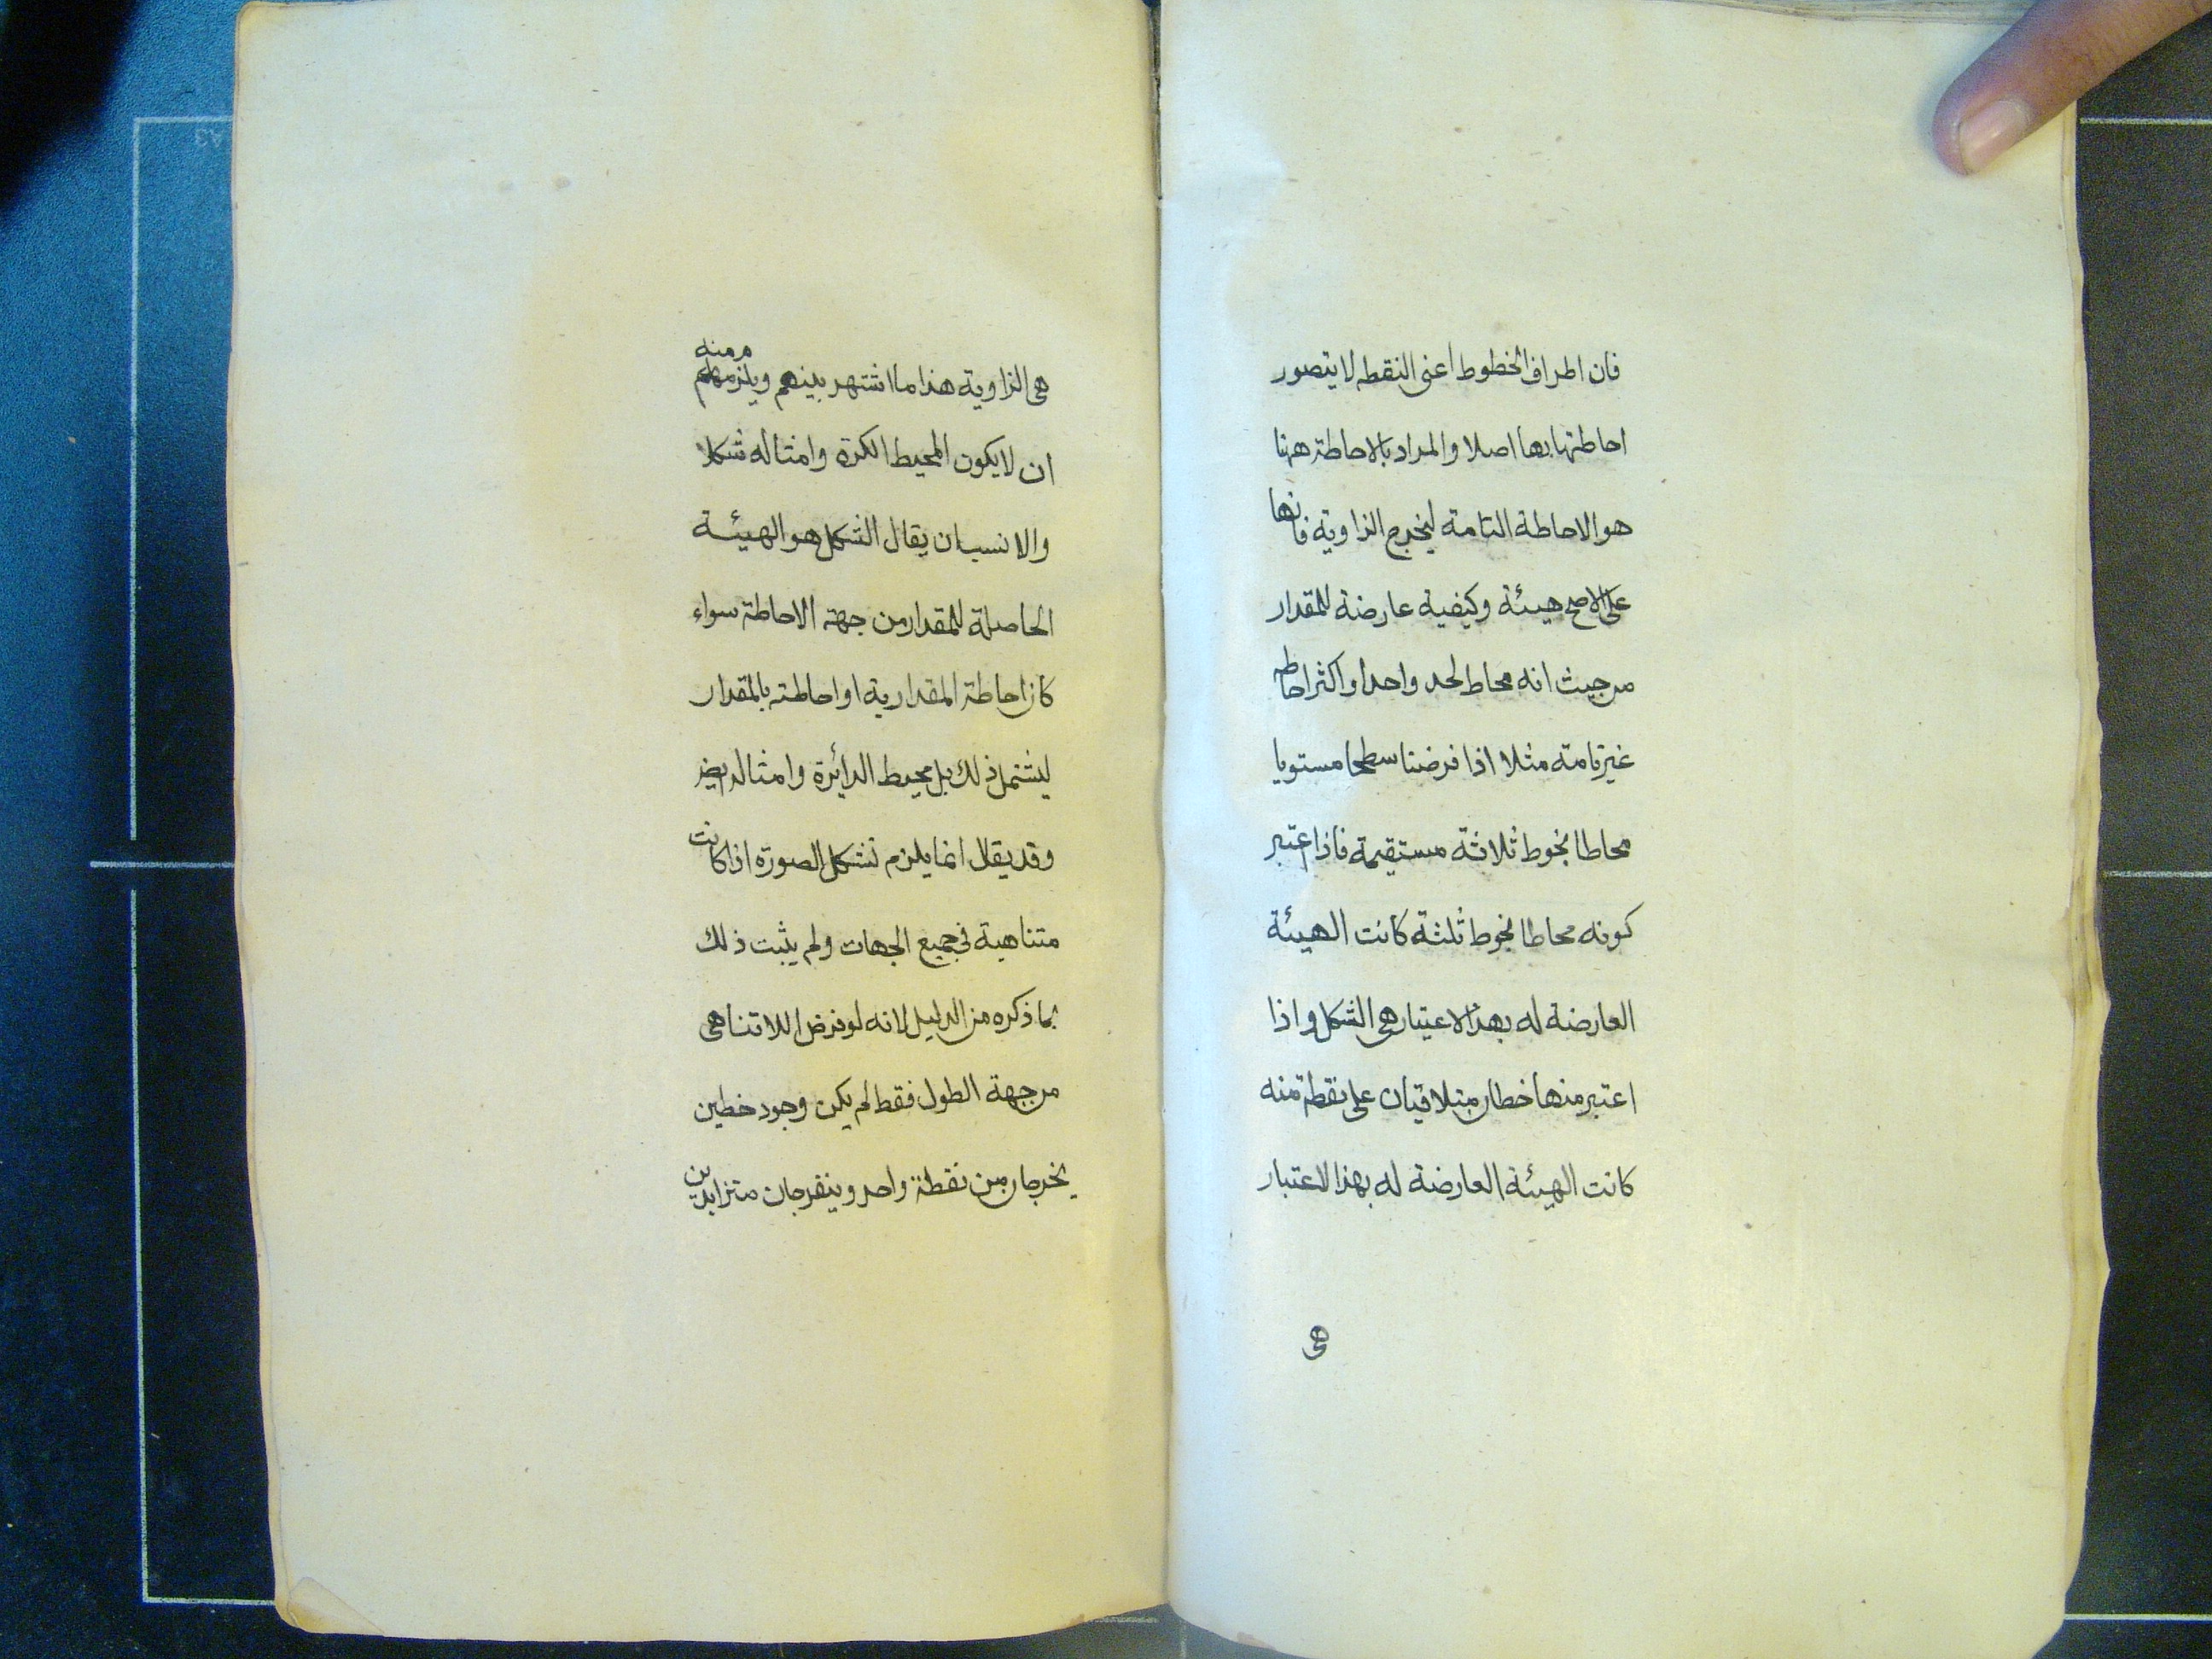 فان اطراف الخطوط اعنى النقطه لا يتصور
احاطتها بها اصلا والمراد بالاحاطة ههنا
هو الاحاطة التامة ليخرج الزاوية فانها
على الاصح هيئة وكيفية عارضة للمقدار
من حيث انه محاط لحد واحد او اكثر احاطه
غير تامة مثلا اذا فرضنا سطحا مستويا
محاطا بخوط ثلاثة مستقيمة فاذا اعتبر
كونه محاطا بخوط ثلثة كانت الهيئة
العارضة له بهذا الاعتبار هى الشكل و اذا
اعتبر منها خطان متلاقيان على نقطة منه
كانت الهيئة العارضة له بهذا الاعتبار
هى
هى الزاوية هذا ما اشتهر بينهم ويلزمهم
منه
ان لا يكون المحيط الكرة وامثاله شكلا
والانسب ان يقال الشكل هو الهيئة
الحاصلة للمقدار من جهة الاحاطة سواء
كان احاطة المقدارية او احاطته بالمقدار
ليشتمل ذلك بل محيط الدائرة وامثاله ايضا
وقد يقال انما يلزم تشكل الصورة اذا كانت
متناهية فى جميع الجهات ولم يثبت ذلك
بما ذكره من الدليل لانه لو فرض اللاتناهى
من جهة الطول فقط لم يكن وجود خطين
يخرجان من نقطة واحد وينفرجان متزايدين